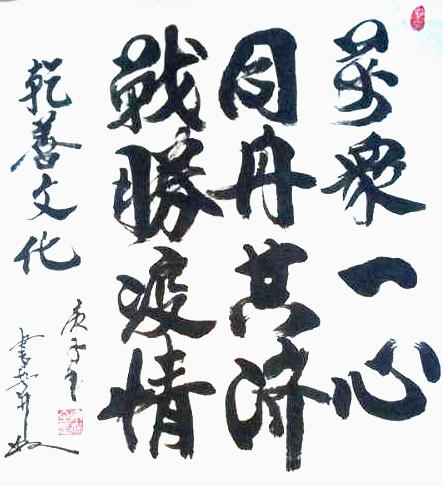 萬衆一心
同舟共济
戰勝疫情
乾善文化
庚子